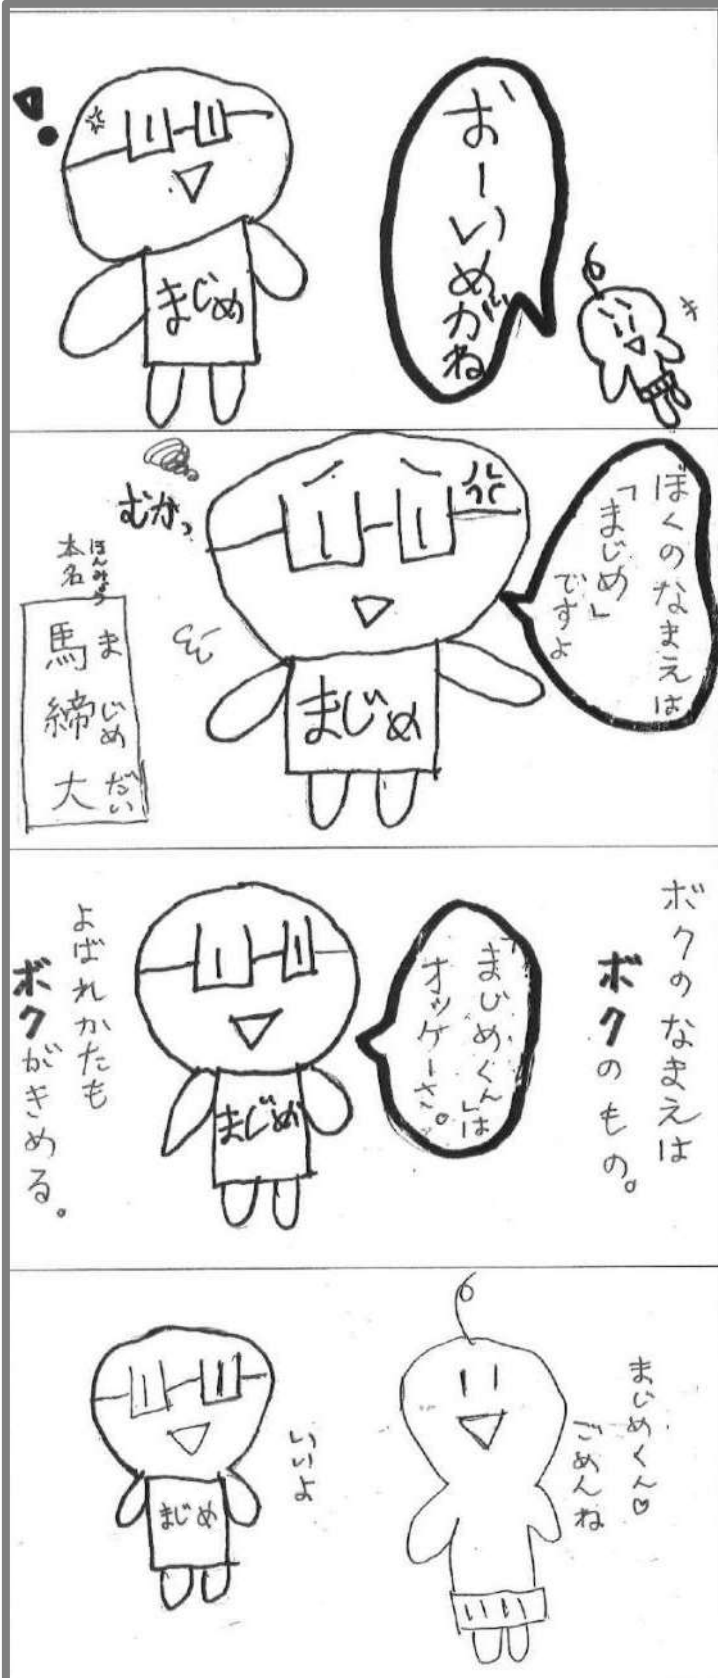 おーいめがね
まじめ
ぼくのなまえは
「まじめ」
ですよ
むかっ
まじめ
ほんみょう
本名
ま じめ だい
馬締大
ボクのなまえは
ボクのもの。
「まじめくん」は
オッケーさ。
まじめ
よばれかたも
ボクがきめる。
まじめくん♡
ごめんね
いいよ
まじめ